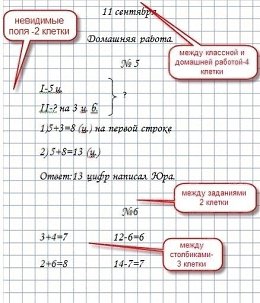 11 сентября
невидимые
поля -2 клетки
Домашняя работа.
между классной и
домашней работой-4
клетки
№ 5
I-5 ц.
II-? на 3 ц. б.
?
1)5+3=8 (ц.) на первой строке
2) 5+8=13 (ц.)
Ответ:13 цифр написал Юра.
между заданиями
2 клетки
№6
3+4=7 12-6=6
между
столбиками-
3 клетки
2+6=8 14-7=7